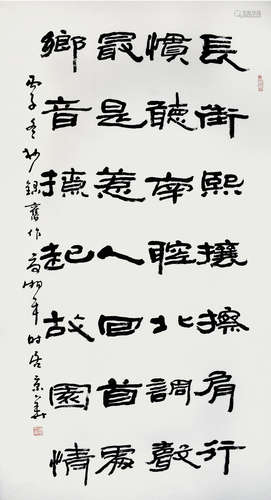 長街熙攘擦肩行
慣聽南腔北調聲
最是惹人回首處
鄉音撩起故園情
丙子冬抄録舊作 年時居京華